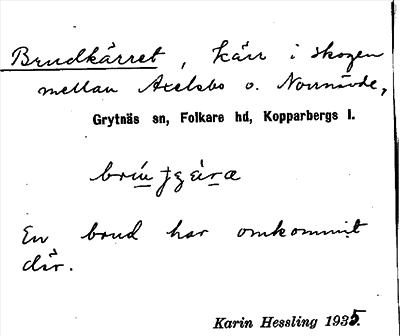 Brudkärret, kärr i skogen
mellan Axelsbo o. Norrnävde,
Grytnäs sn, Folkare hd, Kopparbergs l.
En brud har omkommit
där.
Karin Hessling 1935.